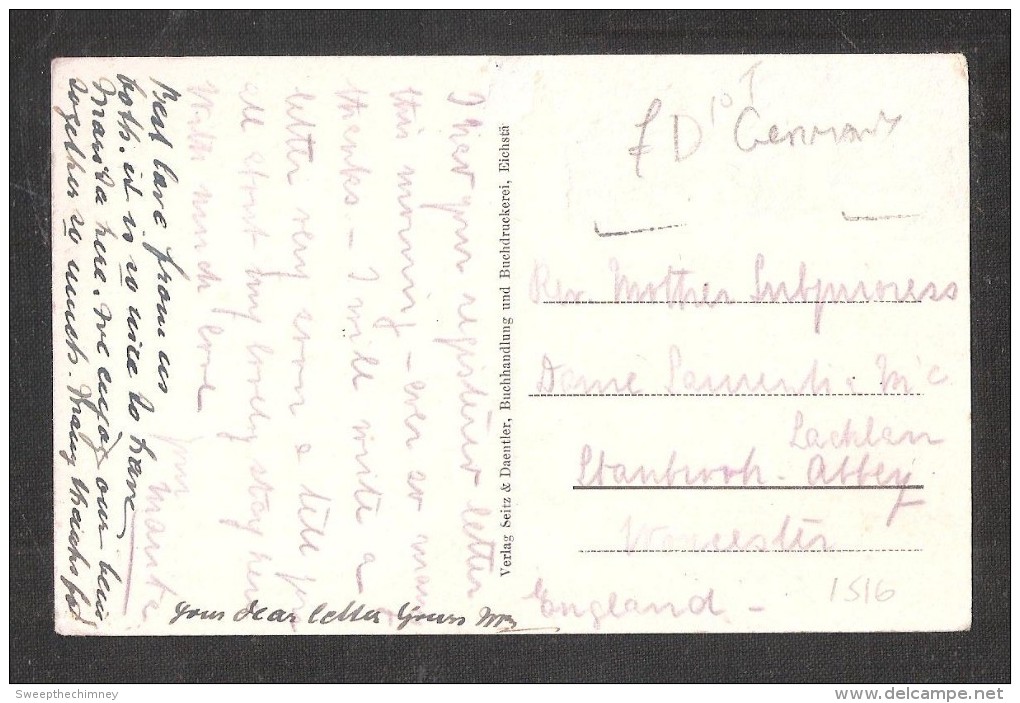 I have your registered letter
this morning - ever so many
thanks - I will write a
letter very soon & tell you
all about my lovely stay here
With much love
your
Best love from us
both. it is so nice to have
here. we enjoy our being
together so much. Many thanks for
your dear letter
Verlag Seitz & Daentler, Buchhandlung und Buchdruckerei, Eichstä
£D 10 Germany
Rev. Mother Subprioress
Dame Laurentia Mc
Lachlan
Stanbrook Abbey
Worcester
England -
1516
Sweepthechimney
www.delcampe.net